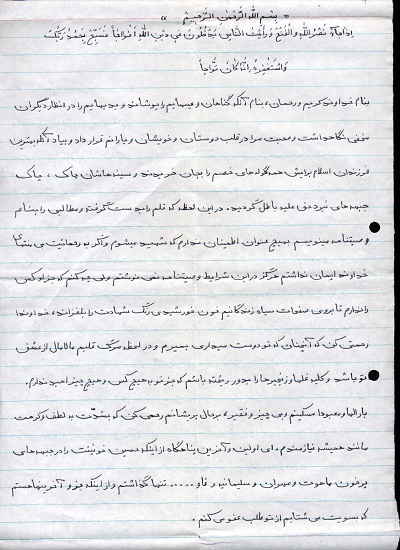 « بسم الله الرحمن الرحیم »
اذا جاء نصر الله و الفتح و رایت الناس یدخلون فی دین الله افواجاً فسبح بحمد ربک
واستغفره انه کان تواباً
بنام خداوند کریم و رحمان، بنام آنکه گناهان و عیبهایم را پوشاند و بدیهایم را در انظار دیگران
مخفی نگاهداشت و محبت مرا در قلب دوستان و خویشان و یارانم قرار داد و بیاد آنکه بهترین
فرزندان اسلام برایش همه گلوله‌های خصم را بجان خریدند و سینه‌هاشان چاک، چاک
جبهه‌های نبرد حق علیه باطل گردید. در این لحظه که قلم را بدست گرفته و مطالبی را بنام
وصیتنامه مینویسم بهیچ عنوان اطمینان ندارم که شهید میشوم و اگر به رحمانیت بی منتهای
خداوند ایمان نداشتم هرگز در این شرایط وصیتنامه نمی نوشتم ولی چه کنم که جز او کس
را ندارم تا بروی صفحات سیاه زندگانیم خون خورشیدی رنگ شهادت را بلغزاند، خداوندا
رحمتی کن که آنچنان که تو دوست میداری بمیرم و در لحظه مرگ قلبم مالامال از عشق
تو باشد و کلیه غلها و زنجیرها را بدور ریخته باشم که جز تو به هیچ کس و هیچ چیز امید ندارم.
بارالها، معبودا مسکینم بی چیز و فقیرم، برحال پریشانم رحمی کن که بشدت به لطف و کرمت
مانند همیشه نیازمندم. ای اولین و آخرین پناهگاه از اینکه حسین خونینت را در جبهه‌های
پرخون ماحوت و مهران و سلیمانیه و فاو ..... تنها گذاشتم و از اینکه جزو آخرینها هستم
که بسویت می شتابم از تو طلب عفو می کنم.